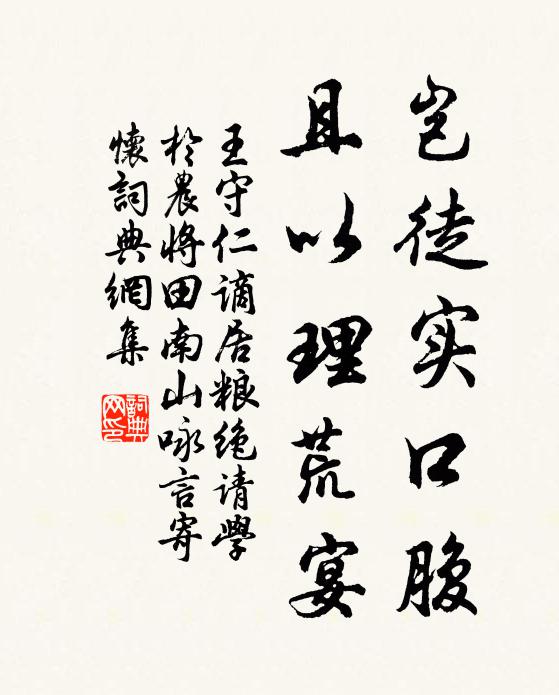 岂徒实口腹
且以理荒宴
王守仁谪居粮绝请学
於農将田南山咏言寄
懷詞典網集
詞典
网印